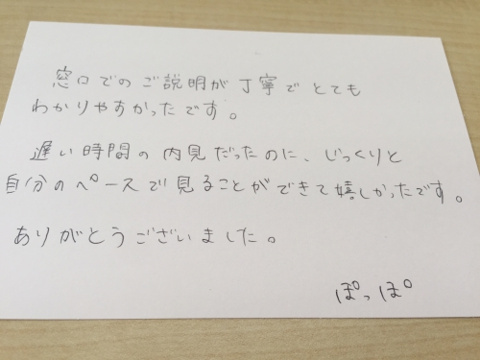 窓口でのご説明が丁寧でとても
わかりやすかったです。
遅い時間の内見だったのに、じっくりと
自分のペースで見ることができて嬉しかったです。
ありがとうございました。
ぽっぽ